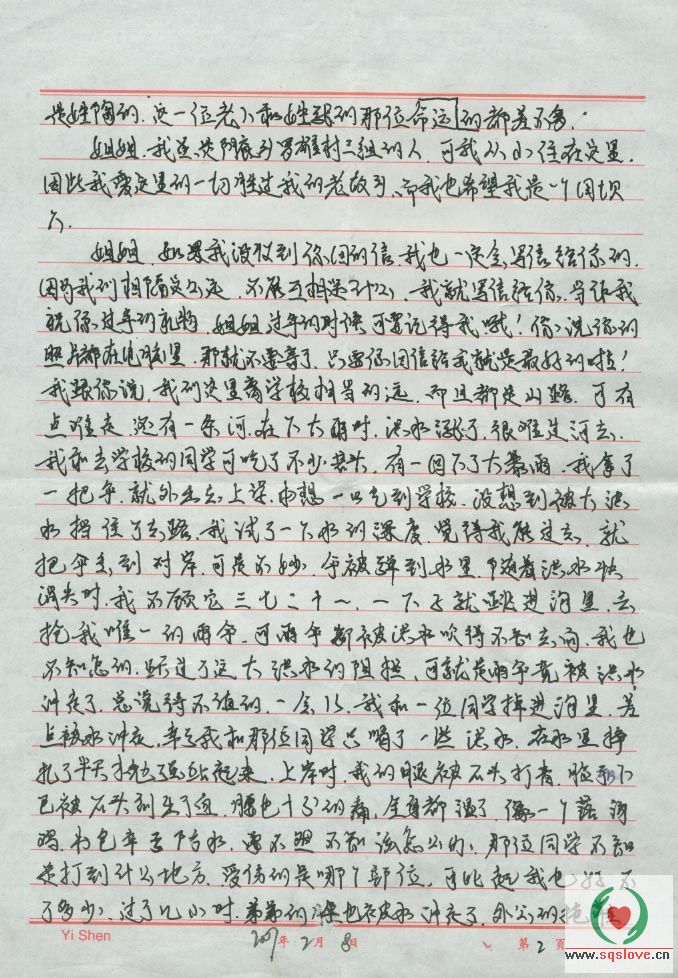 是姓陶的.这一位老人和姓张的那位命运的都差不多.
姐姐.我是洪门底乡罗维村三组的人,可我从小住在这里.
因此我爱这里的一切胜过我的老故乡、而我也希望我是一个因坝
人.
姐姐.如果我没收到你回的信.我也一定会写信给你的.
因为我们相隔这么远.不能互相送什么.我就写信给你.当作我
祝你过年的礼物.姐姐过年的时候可要记得我哦!你说你的
照片都在电脑里.那就不要寄了.只要你回信给我就是最好的啦!
我跟你说,我们这里离学校相当的远.而且都是山路.可有
点难走.还有一条河.在下大雨时.洪水涨了.很难过河去.
我和去学校的同学可吃了不少苦头.有一回下了大暴雨.我拿了
一把伞.就外出去上学.也想一口气到学校.没想到被大洪
水挡住了去路.我试了一下水的深度.觉得我能过去.就
把伞丢到对岸.可是不妙.伞被弹到水里.随着洪水快
消失时.我不顾它三七二十一.一下子就跳进沟里.去
抢我唯一的雨伞.可雨伞都被洪水吹得不知去向.我也
不知怎的.跃过了这大洪水的阻拦.可就是雨伞竟被洪水
冲走了.总觉得不值的.一会儿.我和一位同学掉进沟里.差
点被水冲走.幸亏我和那位同学只喝了一些洪水.在水里挣
扎了半天才站起来.上岸时.我的腿被石头打青.脸
已被石头刮出了血.腰也十分的痛.全身都湿了.像一个落汤
鸡.书包幸亏防水.要不然不知该怎么办.那位同学不知
是打到什么地方.受伤的是哪个部位.可比起我也好不
了多少.过了几小时.弟弟的 也被水冲走了.外公的拖
Yi Shen 2007年2月8日 第2页
www.sqslove.cn